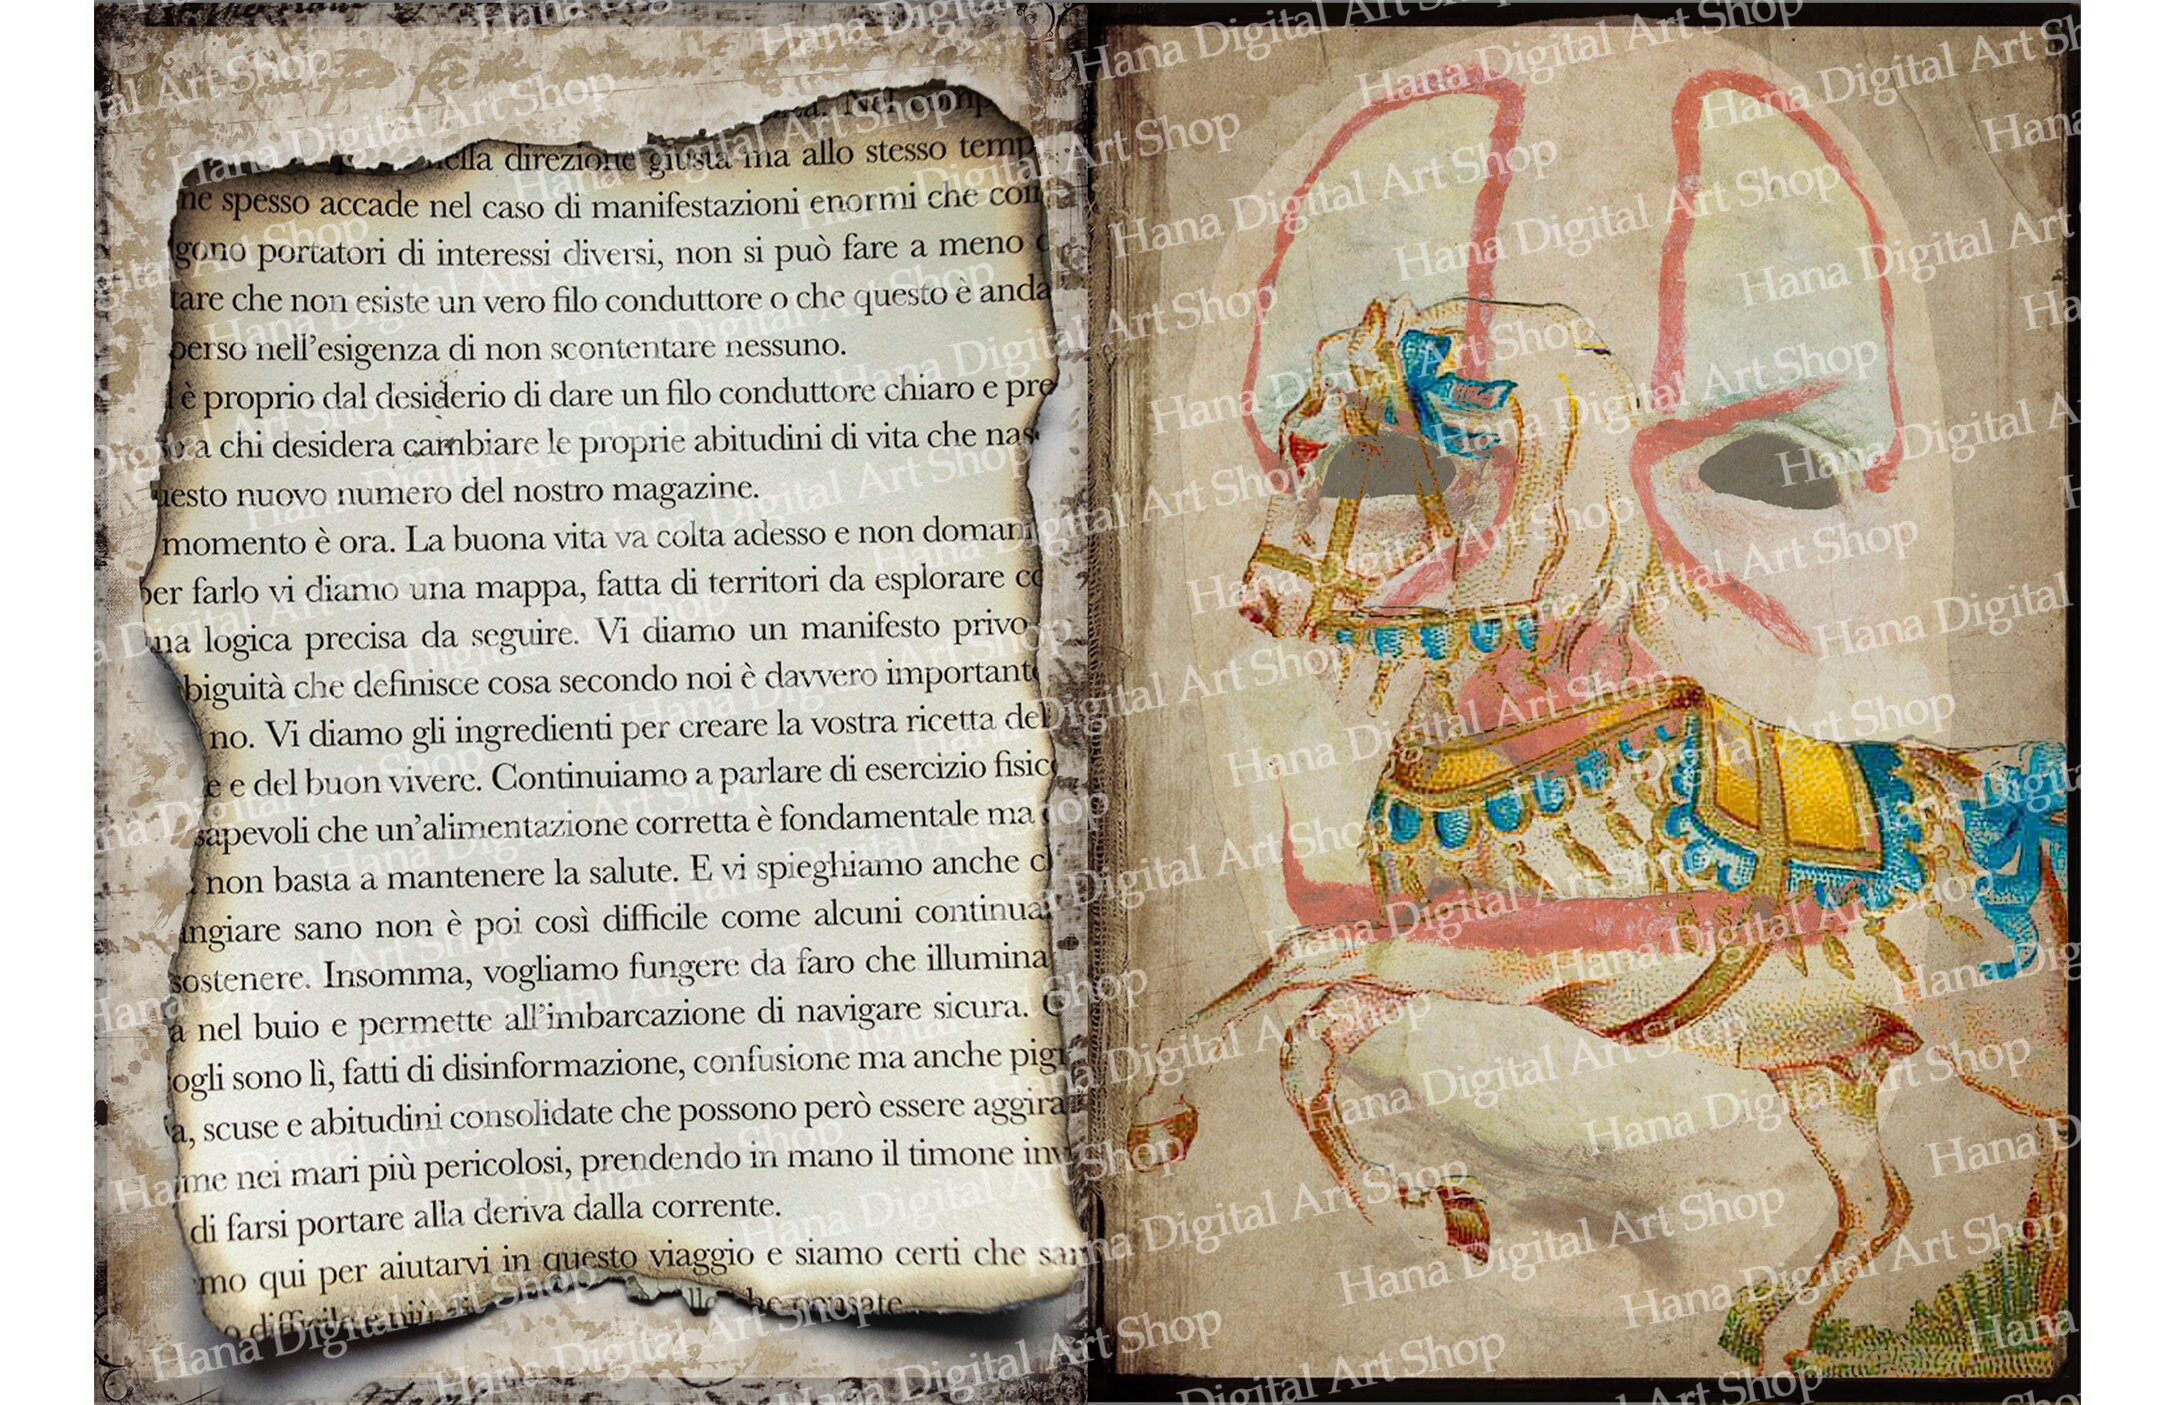 . Nel
nella direzione giusta ma allo stesso temp
ne spesso accade nel caso di manifestazioni enormi che con
gono portatori di interessi diversi, non si può fare a meno
tare che non esiste un vero filo conduttore o che questo è anda
perso nell'esigenza di non scontentare nessuno.
è proprio dal desiderio di dare un filo conduttore chiaro e pre
o a chi desidera cambiare le proprie abitudini di vita che nas
uesto nuovo numero del nostro magazine.
momento è ora. La buona vita va colta adesso e non domani
per farlo vi diamo una mappa, fatta di territori da esplorare co
na logica precisa da seguire. Vi diamo un manifesto privo
biguità che definisce cosa secondo noi è davvero importante
no. Vi diamo gli ingredienti per creare la vostra ricetta del
e e del buon vivere. Continuiamo a parlare di esercizio fisico
sapevoli che un'alimentazione corretta è fondamentale ma
non basta a mantenere la salute. E vi spieghiamo anche ch
angiare sano non è poi così difficile come alcuni continua
sostenere. Insomma, vogliamo fungere da faro che illumina
a nel buio e permette all'imbarcazione di navigare sicura.
ogli sono lì, fatti di disinformazione, confusione ma anche pigr
a, scuse e abitudini consolidate che possono però essere aggira
me nei mari più pericolosi, prendendo in mano il timone inv
di farsi portare alla deriva dalla corrente.
mo qui per aiutarvi in questo viaggio e siamo certi che sar
o difficile che pensate
Hana Digital Art Shop